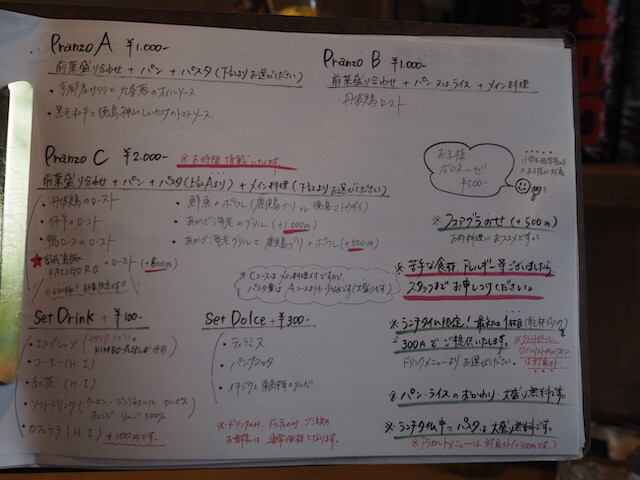 Pranzo A ¥1.000-
前菜盛り合わせ + パン + パスタ (下記よりお選びください)
・京鴨とサワラと九条葱のオイルソース
・黒毛和牛と徳島神山しいたけのトマトソース
Pranzo B ¥1.000-
前菜盛り合わせ + パン又はライス + メイン料理
・丹波鶏ロースト
Pranzo C ¥2.000-
※お時間頂戴いたします。
前菜盛り合わせ + パン + パスタ(上記Aより) + メイン料理 (下記よりお選びください)
・丹波鶏のロースト
・仔牛のロースト
・鴨ロースのロースト
★宮城島豚 のロースト (+800円)
・鮮魚のポワレ (鹿児島ブリ or 徳島マトウダイ)
・あかざ海老のグリル (+1.000円)
・あかざ海老グリルと鹿児島ブリのポワレ (+500円)
※Cコースはメイン料理付ですので、
パスタ量はAコースよりも少なめです(大盛り可)
お子様
ボロネーゼ
¥500-
※フォアグラのせ (+500円)
お肉料理におススメです。
※苦手な食材、アレルギー等ございましたら
スタッフまでお申しつけください。
Set Drink + ¥100-
・エスプレッソ
KIMBO 使用
・コーヒー (H・I)
・紅茶 (H・I)
・ソフトドリンク (ウーロン・ジンジャエール・カルピス
オレンジ・リンゴ100%)
・カフェラテ (H・I) +100円です。
Set Dolce + ¥300-
・ティラミス
・パンナコッタ
・イチジクと
※ドリンクのみ、ドルチェのみご注文の
お客様は通常価格となります。
※ランチタイム限定！最初の1杯目(乾杯ドリンク)を
300円でご提供いたします。
ドリンクメニューよりお選びください。
※パン・ライスのおかわり・大盛り無料です。
※ランチタイム中のパスタは大盛り無料です。
※アラカルトメニューは対象外(+300円です。)